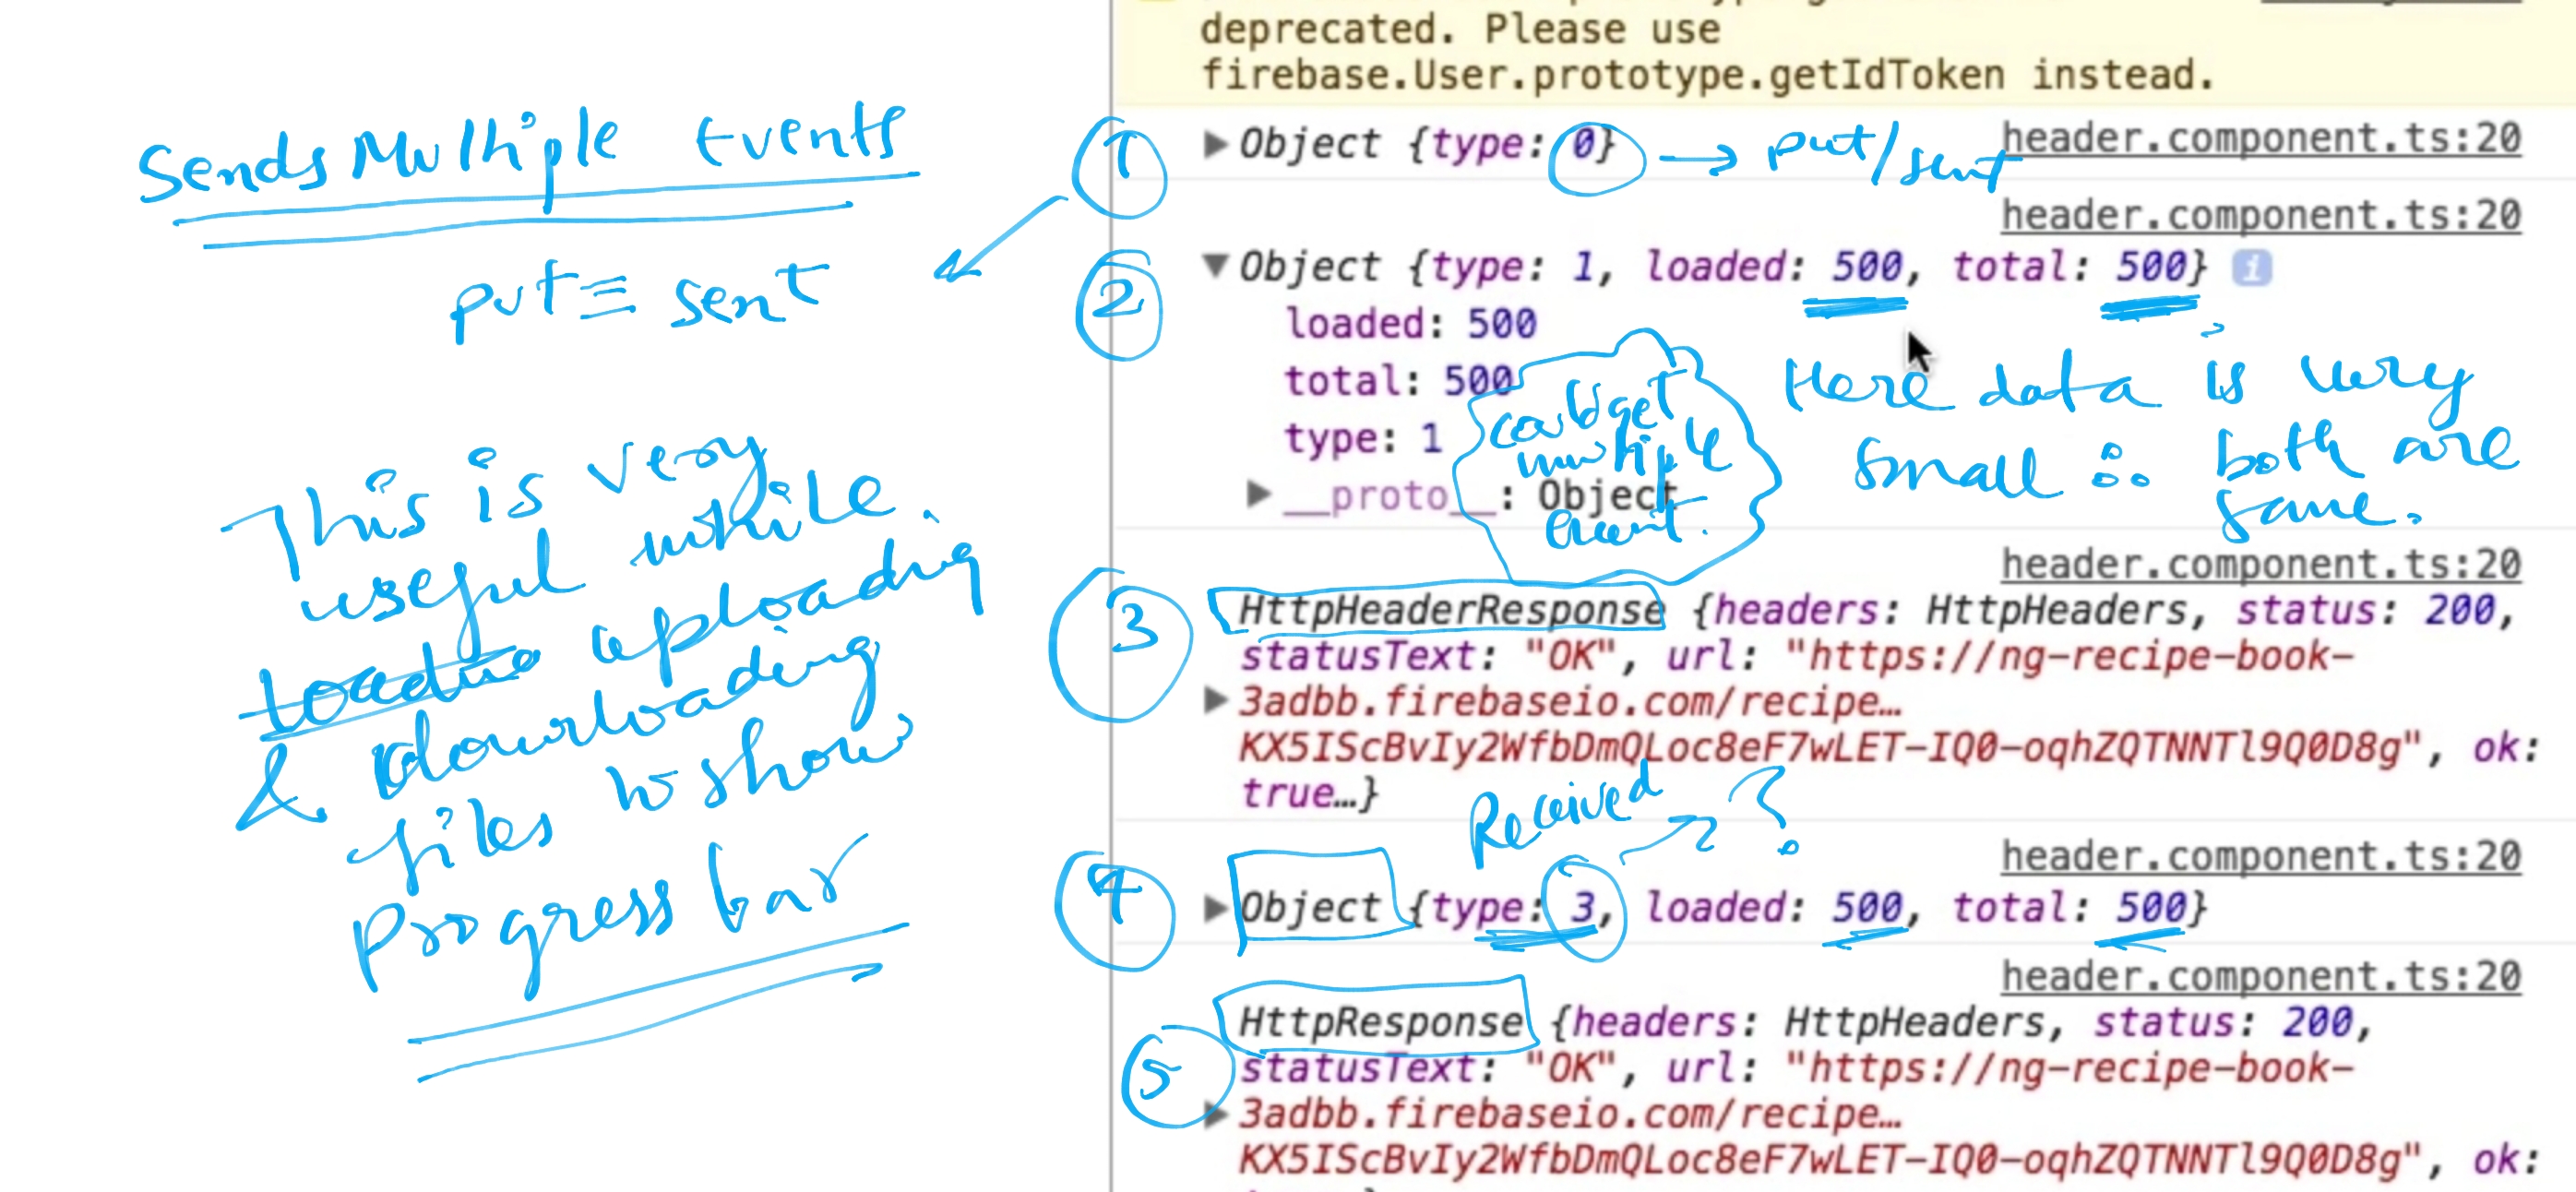 Sends Multiple Events
put ≡ sent
This is very
useful while
uploading
& downloading
files to show
progress bar
deprecated. Please use
firebase.User.prototype.getIdToken instead.
1
▶ Object {type: 0} → put/sent
header.component.ts:20
header.component.ts:20
2
▼ Object {type: 1, loaded: 500, total: 500} i
loaded: 500
total: 500
type: 1
▶ __proto__: Object
could get
multiple
event.
Here data is very
small ∴ both are
same.
header.component.ts:20
3
HttpHeaderResponse {headers: HttpHeaders, status: 200,
statusText: "OK", url: "https://ng-recipe-book-
▶ 3adbb.firebaseio.com/recipe…
KX5IScBvIy2WfbDmQLoc8eF7wLET-IQ0-oqhZQTNNTl9Q0D8g", ok:
true…}
Received → ?
header.component.ts:20
4
▶ Object {type: 3, loaded: 500, total: 500}
header.component.ts:20
5
HttpResponse {headers: HttpHeaders, status: 200,
statusText: "OK", url: "https://ng-recipe-book-
▶ 3adbb.firebaseio.com/recipe…
KX5IScBvIy2WfbDmQLoc8eF7wLET-IQ0-oqhZQTNNTl9Q0D8g", ok: